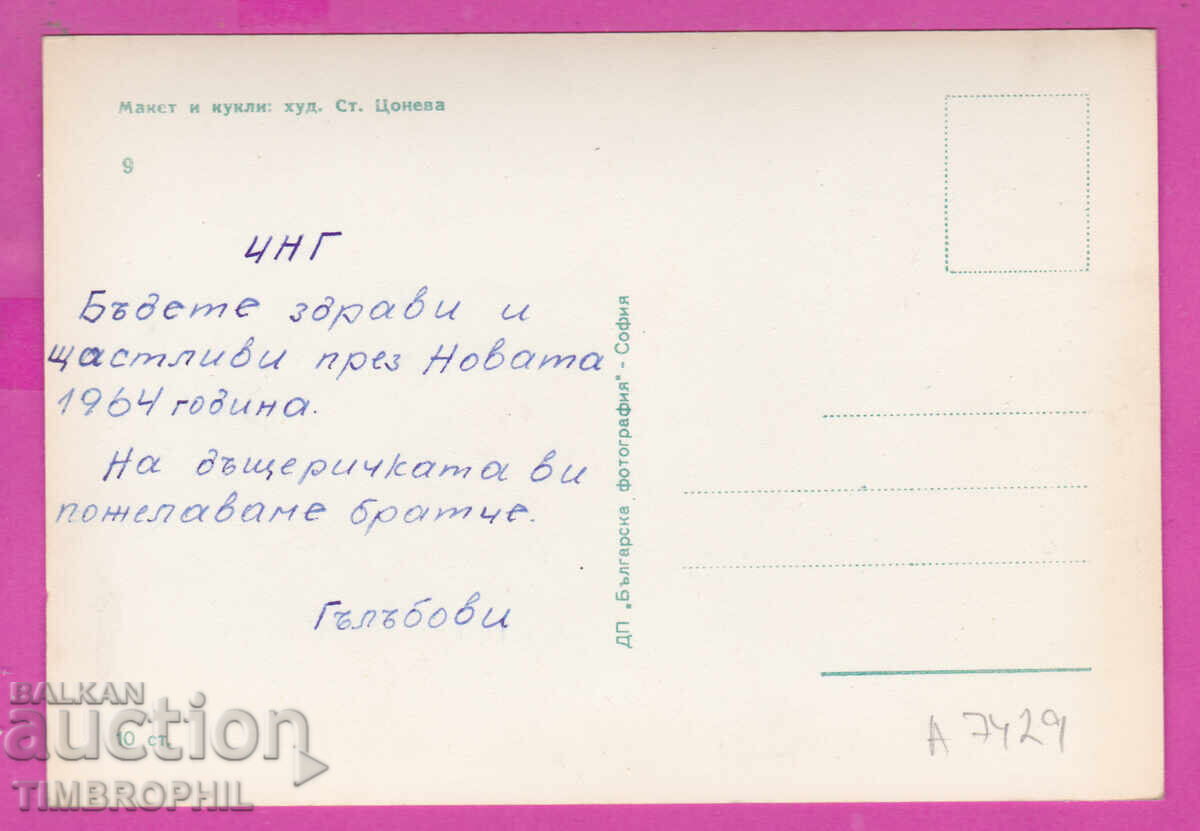 Макет и кукли: худ. Ст. Цонева
9
ЧНГ
Бъдете здрави и
щастливи през Новата
1964 година.
На дъщеричката ви
пожелаваме братче.
Гълъбови
ДП „Българска фотография" - София
10 ст.
А 7429
BALKAN
auction
TIMBROPHIL